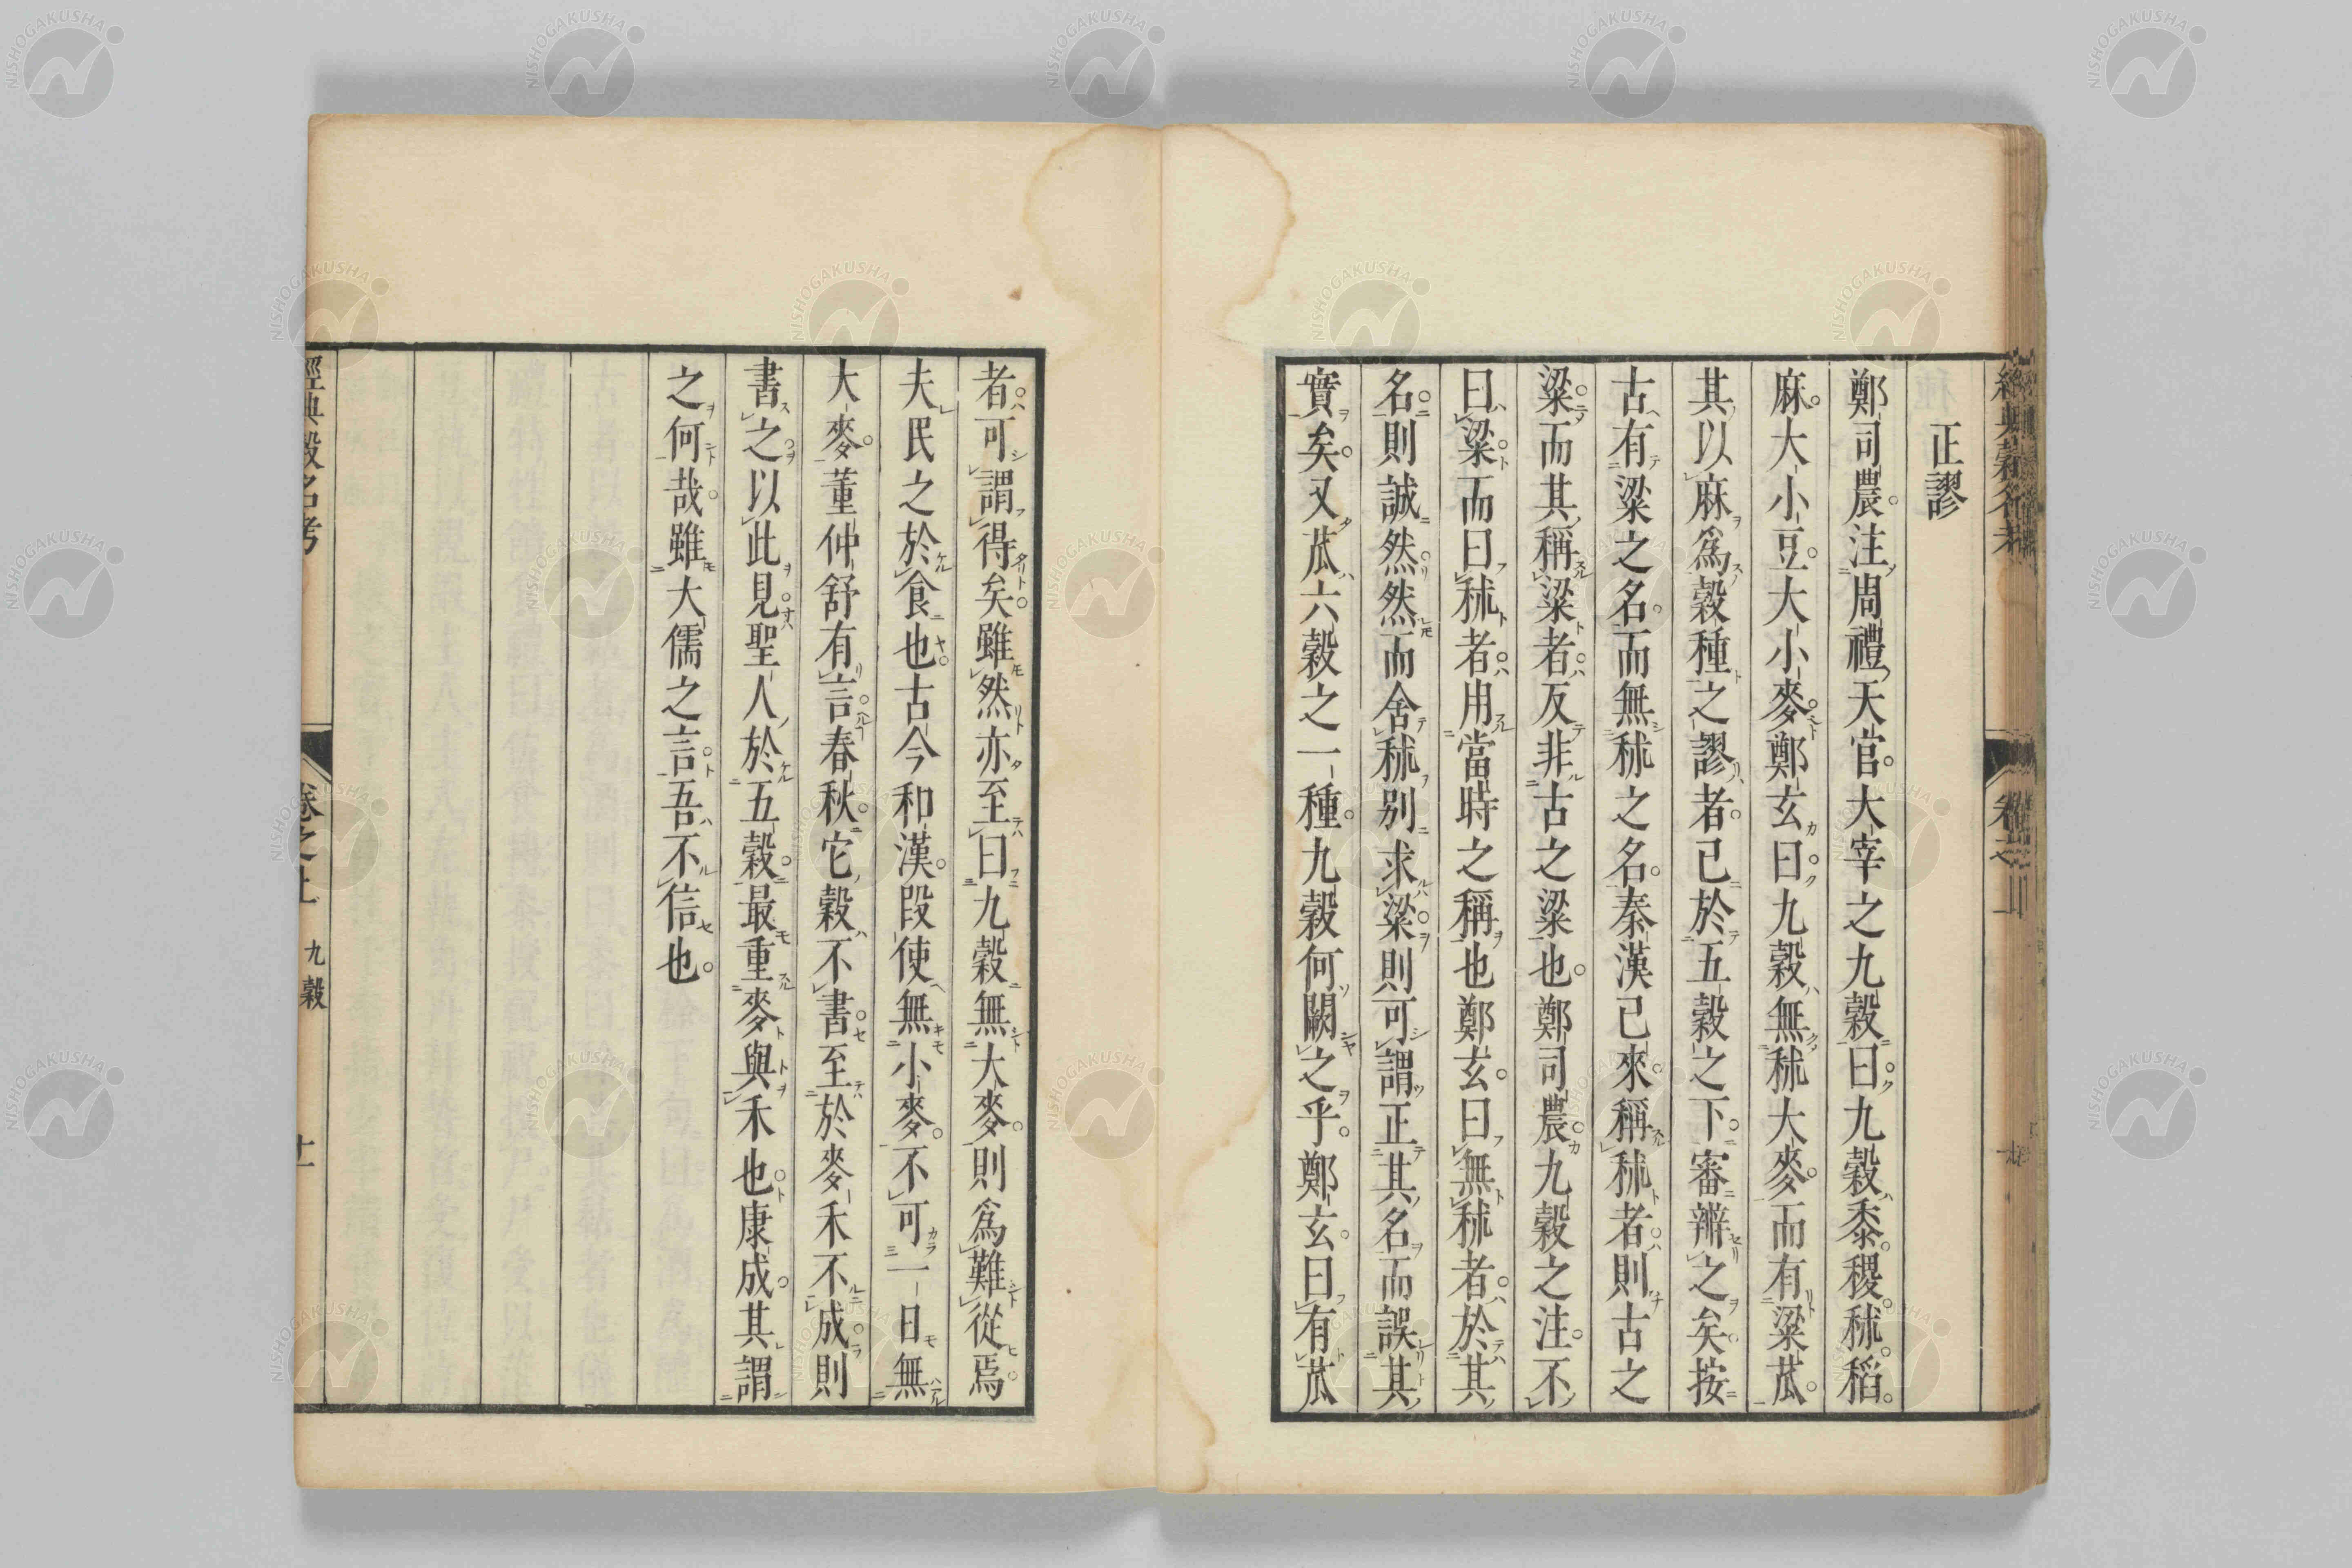 正謬
鄭司農注周禮天官大宰之九穀曰九穀黍稷秫稻
麻大小豆大小麥鄭玄曰九穀無秫大麥而有粱苽
其以麻爲穀種之謬者已於五穀之下審辨之矣按
古有粱之名而無秫之名秦漢已來稱秫者則古之
粱而其稱粱者反非古之粱也鄭司農九穀之注不
曰粱而曰秫者用當時之稱也鄭玄曰無秫者於其
名則誠然然而舍秫別求粱則可謂正其名而誤其
實矣又苽六穀之一種九穀何闕之乎鄭玄曰有苽
者可謂得矣雖然亦至曰九穀無大麥則爲難從焉
夫民之於食也古今和漢段使無小麥不可一日無
大麥董仲舒有言春秋它穀不書至於麥禾不成則
書之以此見聖人於五穀最重麥與禾也康成其謂
之何哉雖大儒之言吾不信也
經典穀名考 卷之上 九穀 十一
NISHOGAKUSHA